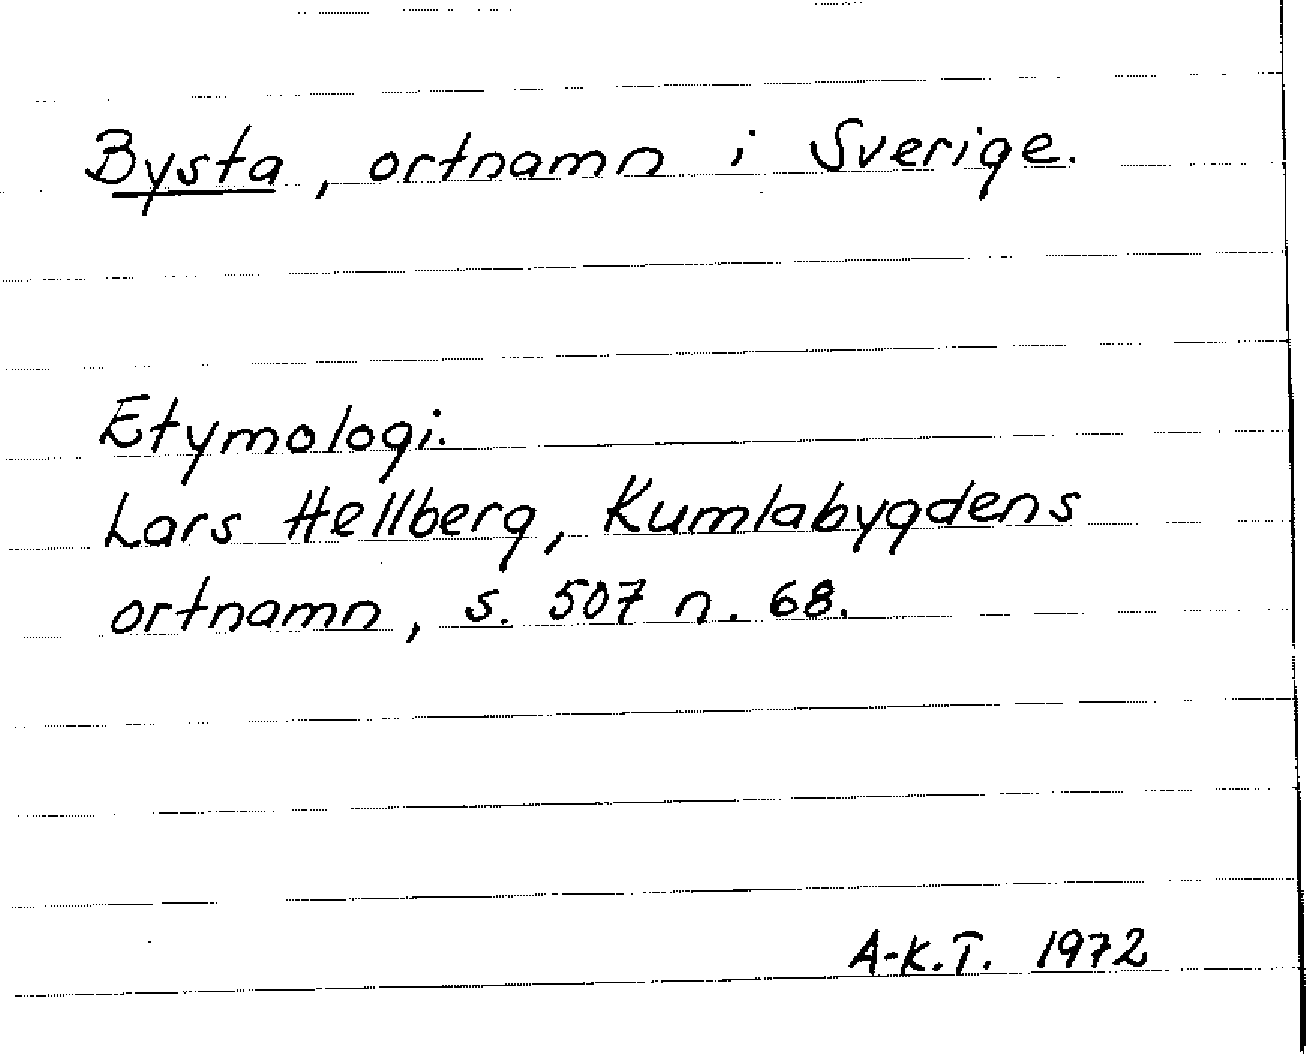 Bysta, ortnamn i Sverige.
Etymologi.
Lars Hellberg, Kumlabygdens
ortnamn, s. 507 n. 68.
A-K.T. 1972